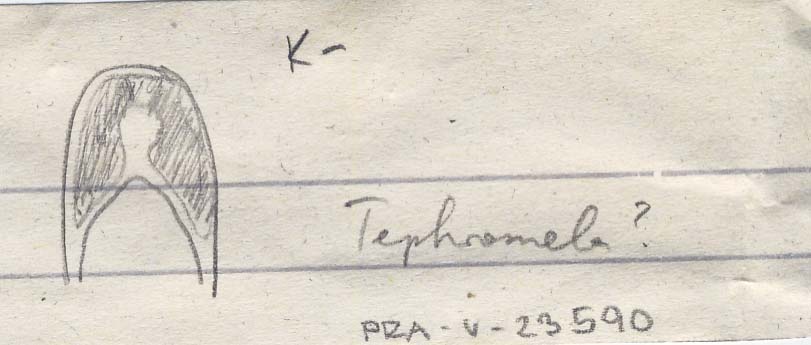 K-
Tephromela?
PRA-V-23590